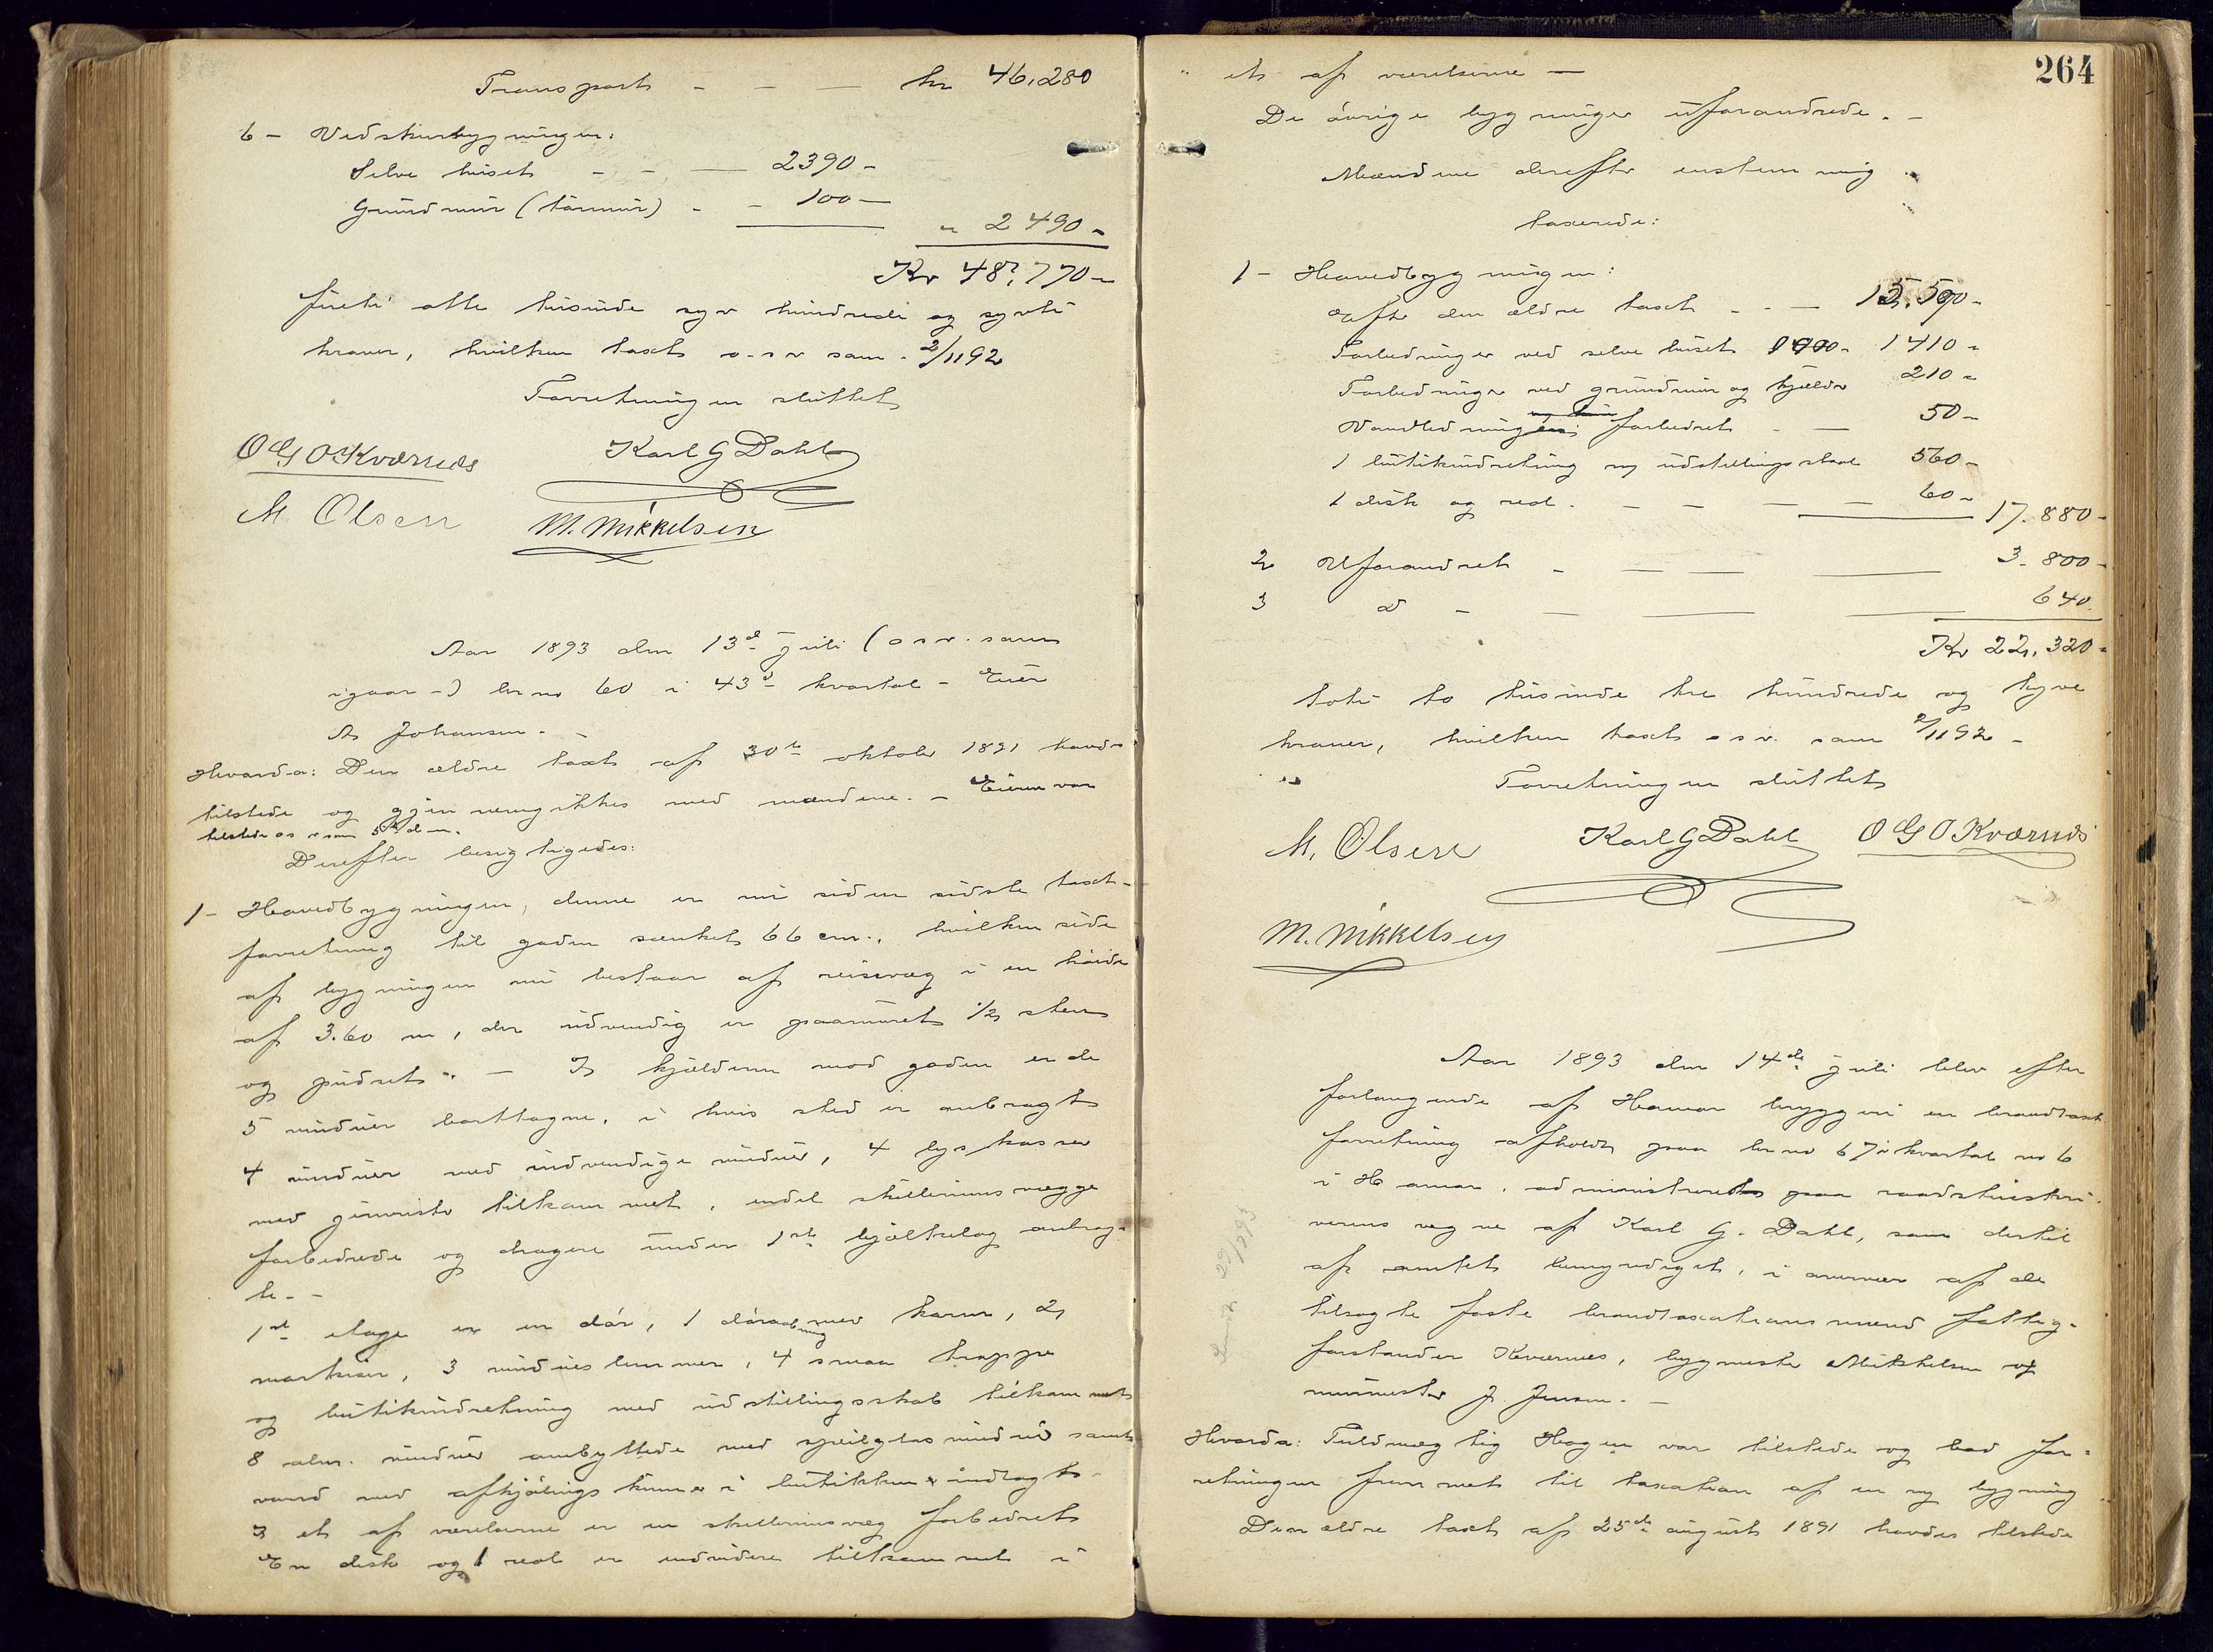 Transport - - - kr 46,280
6 - Vedskurbygningen:
Selve huset - - - 2390 -
Grundmur (tørmur) - - 100 -
" 2490 -
Kr 48,770 -
firti otte tusinde syv hundrede og sytti
kroner, hvilken taxt o.s.v. som 2/11 92
Forretningen sluttet
O G O Kværnes Karl G Dahl
M. Olsen M. Mikkelsen
Aar 1893 den 13de juli (o s v. som
igaar -) br no 60 i 43de kvartal - Eier
A Johansen. -
Hvorda: Den ældre taxt af 30te oktobr 1891 havdes
tilstede og gjennemgikkes med mændene. - Eieren var
tilstede o s v som 5te d m.
Derefter besigtigedes:
1 - Hovedbygningen, denne er nu siden sidste taxt-
forretning til gaden sænket 66 cm., hvilken side
af bygningen nu bestaar af reisvæg i en høide
af 3.60 m, der udvendig er paamuret 1/2 sten
og pudset. - I kjælderen mod gaden er de
5 vinduer borttagne, i hvis sted er anbragt
4 vinduer med indvendige vinduer, 4 lyskasser
med jernriste tilkommet, endel skillerumsvægge
forbedrede og dragere under 1ste bjælkelag anbrag-
te. -
1ste etage er en dør, 1 døraabning med karm, 2
markiser, 3 vindueslemmer, 4 smaa trappe
og butikindretning med udstillingsskab tilkommet
8 alm. vinduer ombyttede med speilglasvinduer samt
vand med afkjølings kumme i butikken indlagt
I et af værelserne er en skillerumsvæg forbedret
En disk og 1 reol er endvidere tilkommet i
264
et af værelserne -
De øvrige bygninger uforandrede. -
Mændene derefter enstemmig
taxerede:
1 - Hovedbygningen:
Efter den ældre taxt - - - 15.590 -
Forbedringer ved selve huset 1410 -
Forbedringer ved grundmur og kjælder 210 -
Vandledningen forbedret - - 50 -
1 butikindretning og udstillingsskab 560 -
1 disk og reol. - - - - 60 - 17.880 -
2 Uforandret - - - - 3.800 -
3 do - - - - 640.
Kr 22,320 -
toti to tusinde tre hundrede og tyve
kroner, hvilken taxt o s v. som 2/11 92 -
Forretningen sluttet
M. Olsen Karl G Dahl O G O Kværnes
M. Mikkelsen
Aar 1893 den 14de juli blev efter
forlangende af Hamar bryggeri en brandtaxt
forretning afholdt paa br no 67 i kvartal no 6
i Hamar, administreret paa raadstueskri-
verens vegne af Karl G. Dahl, som dertil
af amtet bemyndiget, i overvær af de
tilsagte faste brandtaxationsmænd fattig-
forstander Kværnes, bygmester Mikkelsen og
murmester J. Jensen. -
Hvorda: Fuldmægtig Hagen var tilstede og bad for-
retningen fremmet til taxation af en ny bygning
Den ældre taxt af 25de august 1891 havdes tilstede